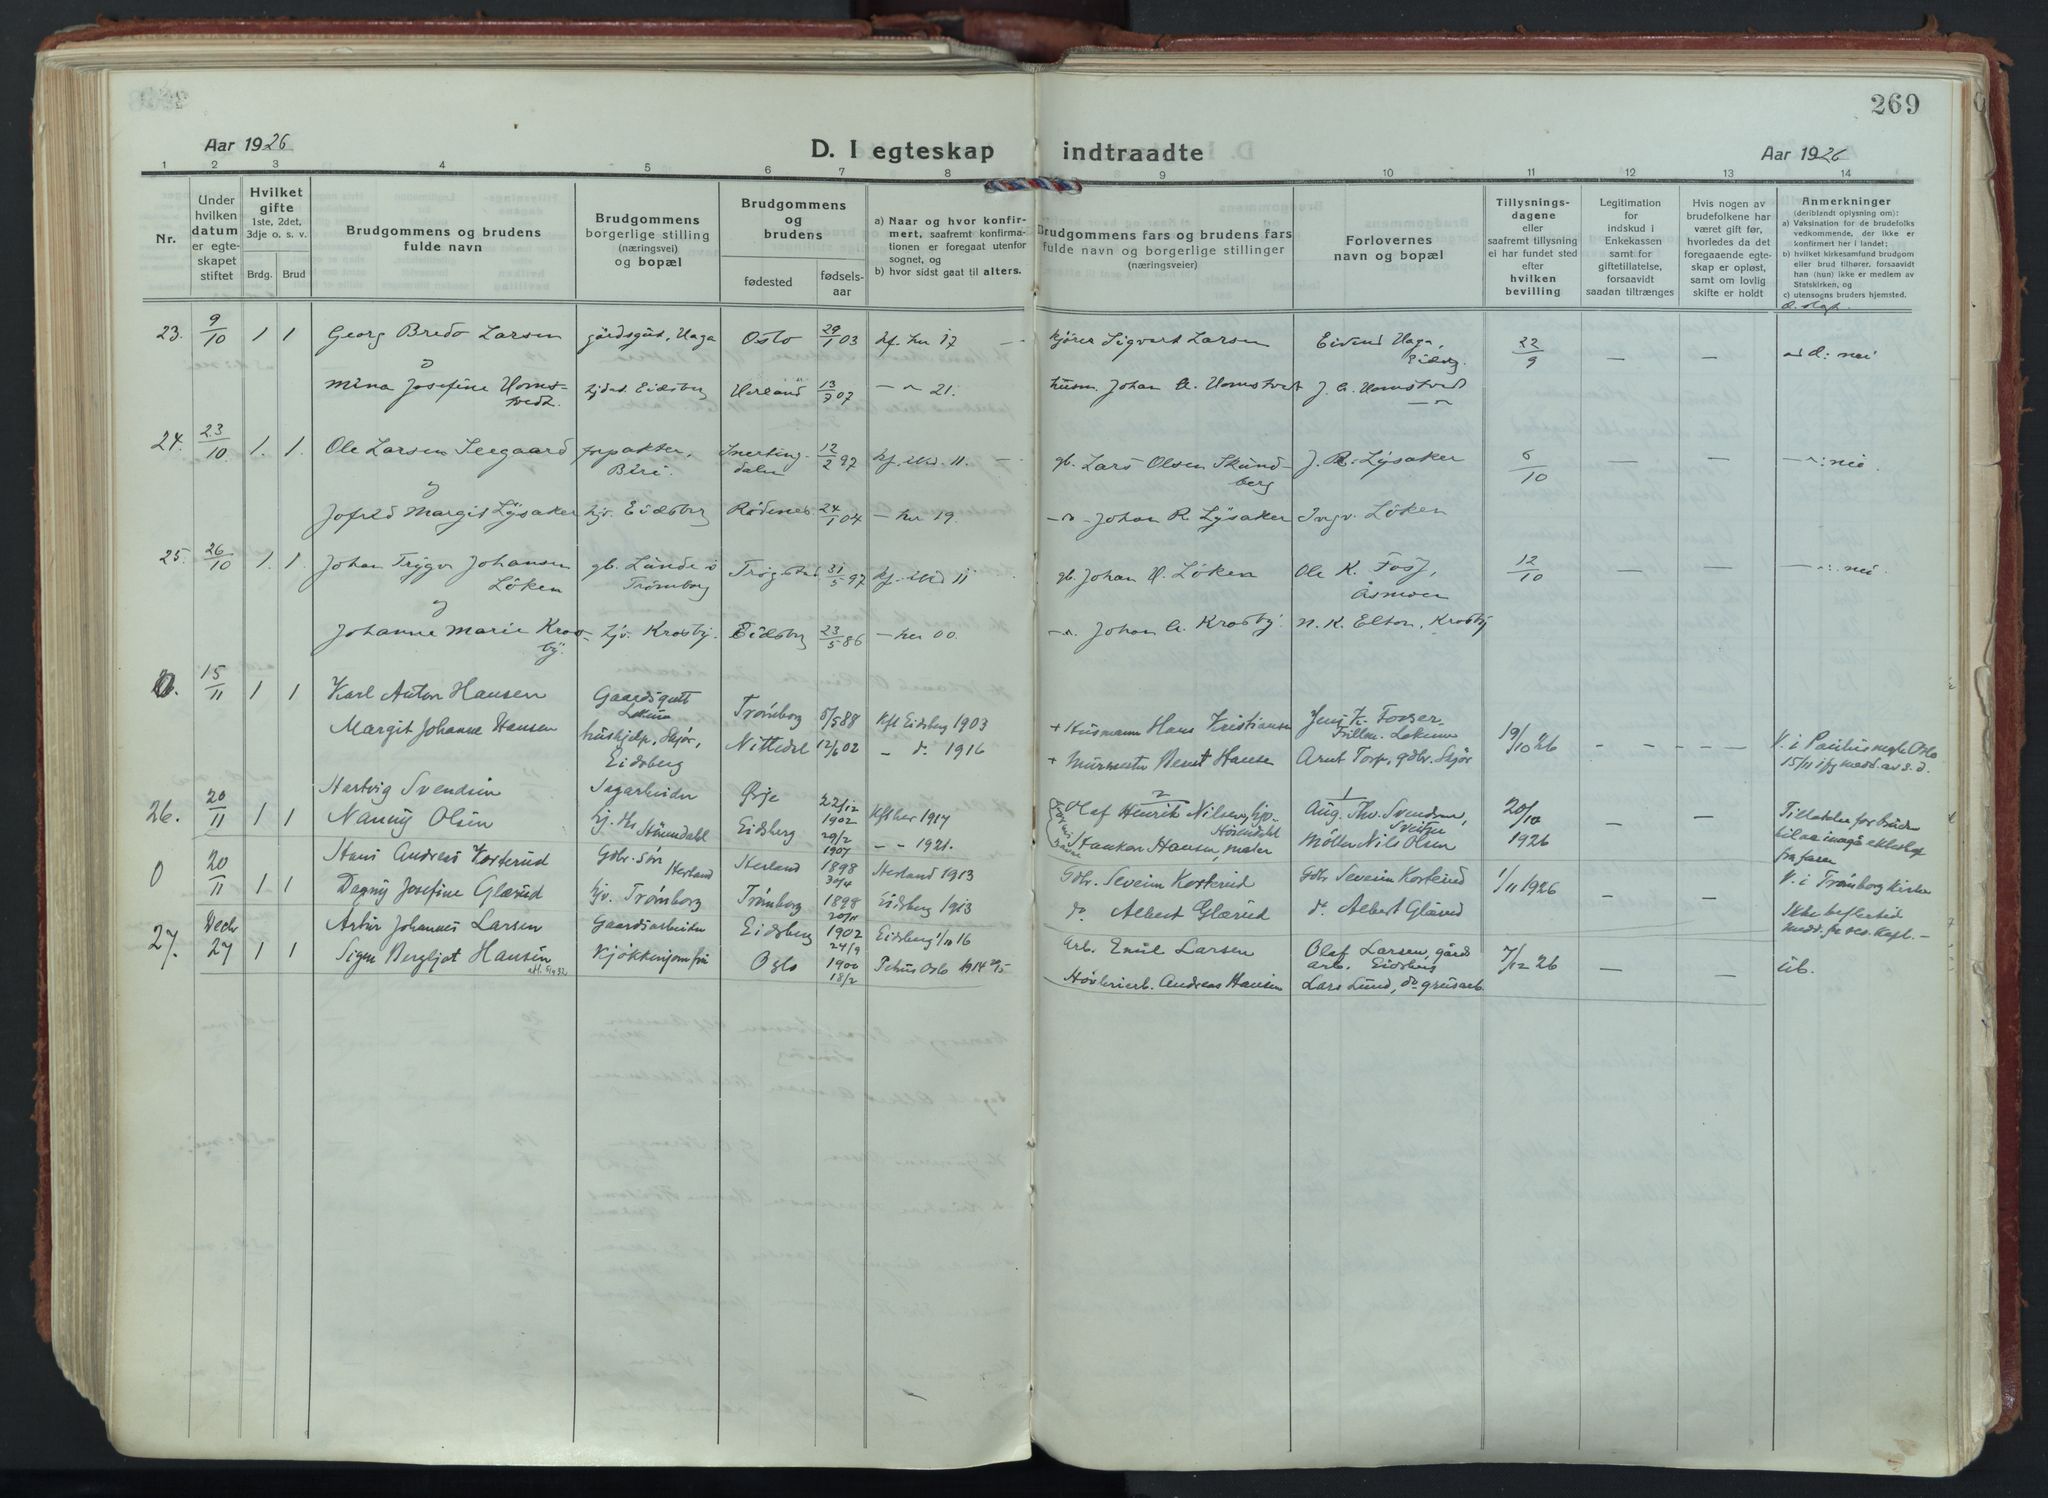 269
Aar 1926
D. I egteskap indtraadte
Aar 1926
1 2 3 4 5 6 7 8 9 10 11 12 13 14
Nr.
Under hvilken datum er egte- skapet stiftet
Hvilket gifte 1ste, 2det, 3dje o. s. v.
Brdg. Brud
Brudgommens og brudens fulde navn
Brudgommens borgerlige stilling (næringsvei) og bopæl
Brudgommens og brudens
fødested
fødsels- aar
a) Naar og hvor konfir- mert, saafremt konfirma- tionen er foregaat utenfor sognet, og
b) hvor sidst gaat til alters.
Brudgommens fars og brudens fars fulde navn og borgerlige stillinger (næringsveier)
Forlovernes navn og bopæl
Tillysnings- dagene eller saafremt tillysning ei har fundet sted efter hvilken bevilling
Legitimation for indskud i Enkekassen samt for giftetillatelse, forsaavidt saadan tiltrænges
Hvis nogen av brudefolkene har været gift før, hvorledes da det foregaaende egte- skap er opløst, samt om lovlig skifte er holdt
Anmerkninger (deriblandt oplysning om):
a) Vaksination for de brudefolks vedkommende, der ikke er konfirmert her i landet;
b) hvilket kirkesamfund brudgom eller brud tilhører, forsaavidt han (hun) ikke er medlem av Statskirken, og
c) utensogns bruders hjemsted.
23. 9/10 1 1 Georg Bredo Larsen gårdsgut, Haga Oslo 29/1 03 kf. her 17 — kjører Sigvart Larsen Eivind Haga, Eidsbg. 22/9 — — ad d: nei
Mina Josefine Homstvedt. Eidsberg Herland 13/7 07 — " — 21. husm. Johan A. Homstvedt J. A. Homstvedt
24. 23/10 1. 1. Ole Larsen Seegaard forpakter, Biri Snertingdalen 12/2 97 kf. 11. — gb. Lars Olsen Skundberg J. R. Lysaker 6/10 — — — " — : nei.
og
Jofrid Margit Lysaker hjv. Eidsberg Rødenes 24/1 04 — her 19. — " — Johan R. Lysaker Ingv. Løken
25. 26/10 1. 1. Johan Trygv Johansen Løken gb. Lunde i Trømborg Trøgstad 31/5 97 kf. 11 gb. Johan Løken Ole K. Fosj, Åsmoen 12/10 — — — " — : nei.
og
Johanne Marie Krosby. hjv. Krosby. Eidsberg 23/5 86 — her 00. — " — Johan A. Krosby. N. K. Elton, Krosby
0. 15/11 1 1 Karl Anton Hansen Gaardsgutt Trømborg 5/5 88 Kft Eidsberg 1903 + Husmann Hans Kristiansen Jens K. Fosser 19/10 26 — — — V. i Paulus Oslo
Margit Johanne Hansen hushjelp, Skjør, Eidsberg Nittedal 12/6 02 — do. 1916 + Murmester Bernt Hansen Arnt Torp, gdbr. Skjør 15/11 medd. av s. d.
26. 20/11 1 1 Hartvig Svendsen Sagarbeider Ørje 22/12 1902 Kft her 1917 Olaf Henrik Nilsen, Aug. Th. Svendsen, 20/10 1926 — — Tillatelse for bruden
Nanny Olsen Eidsberg 29/2 1907 — — 1921. Haakon Hansen, maler Møller Nils Olsen fra faren
0 20/11 1 1 Hans Andreas Korterud Gdbr. søn Herland Herland 1898 30/4 Herland 1913 Gdbr. Severin Korterud Gdbr Severin Korterud 1/11 1926 — — V. i Trømborg kirke
Dagny Josefine Glærud hjv. Trømborg Trømborg 1898 20/11 Eidsberg 1913 do. Albert Glærud do. Albert Glærud
27. Decbr 27 1 1 Artur Johannes Larsen Gaardsarbeider Eidsberg 1902 24/9 Eidsberg 1/10 16 Arb. Emil Larsen Olaf Larsen, gårdarb. Eidsberg 7/12 26 — — ub.
Signe Bergljot Hansen Kjøkkenjomfru Oslo 1900 18/2 Petrus Oslo 1914 Høvleriarb. Andreas Hansen Lars Lund, do grusarb.